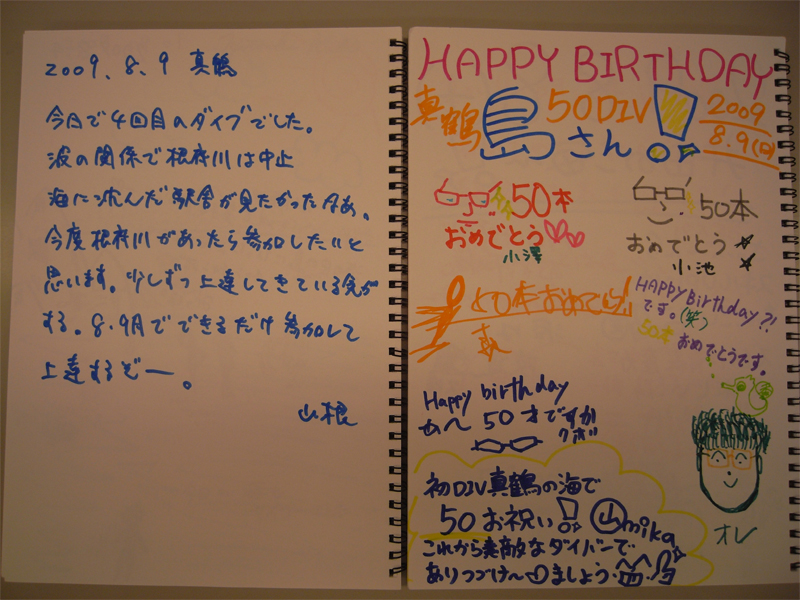 2009.8.9 真鶴
今日で4回目のダイブでした。
波の関係で根府川は中止
海に沈んだ駅舎が見たかったなあ。
今度根府川があったら参加したいと
思います。少しずつ上達してきている気が
する。8.9月でできるだけ参加して
上達するぞー。
山根
HAPPY BIRTHDAY
真鶴 島さん 50DIV!
2009
8.9(日)
50本
おめでとう
小澤
50本
おめでとう
小池
50本おめでとう
HAPPY Birthday?!
です。(笑)
50本 おめでとうです。
Happy birthday
50才ですか
クボ
オレ
初DIV真鶴の海で
50お祝い! 山mika
これから素敵なダイバーで
ありつづけ〜ましょう